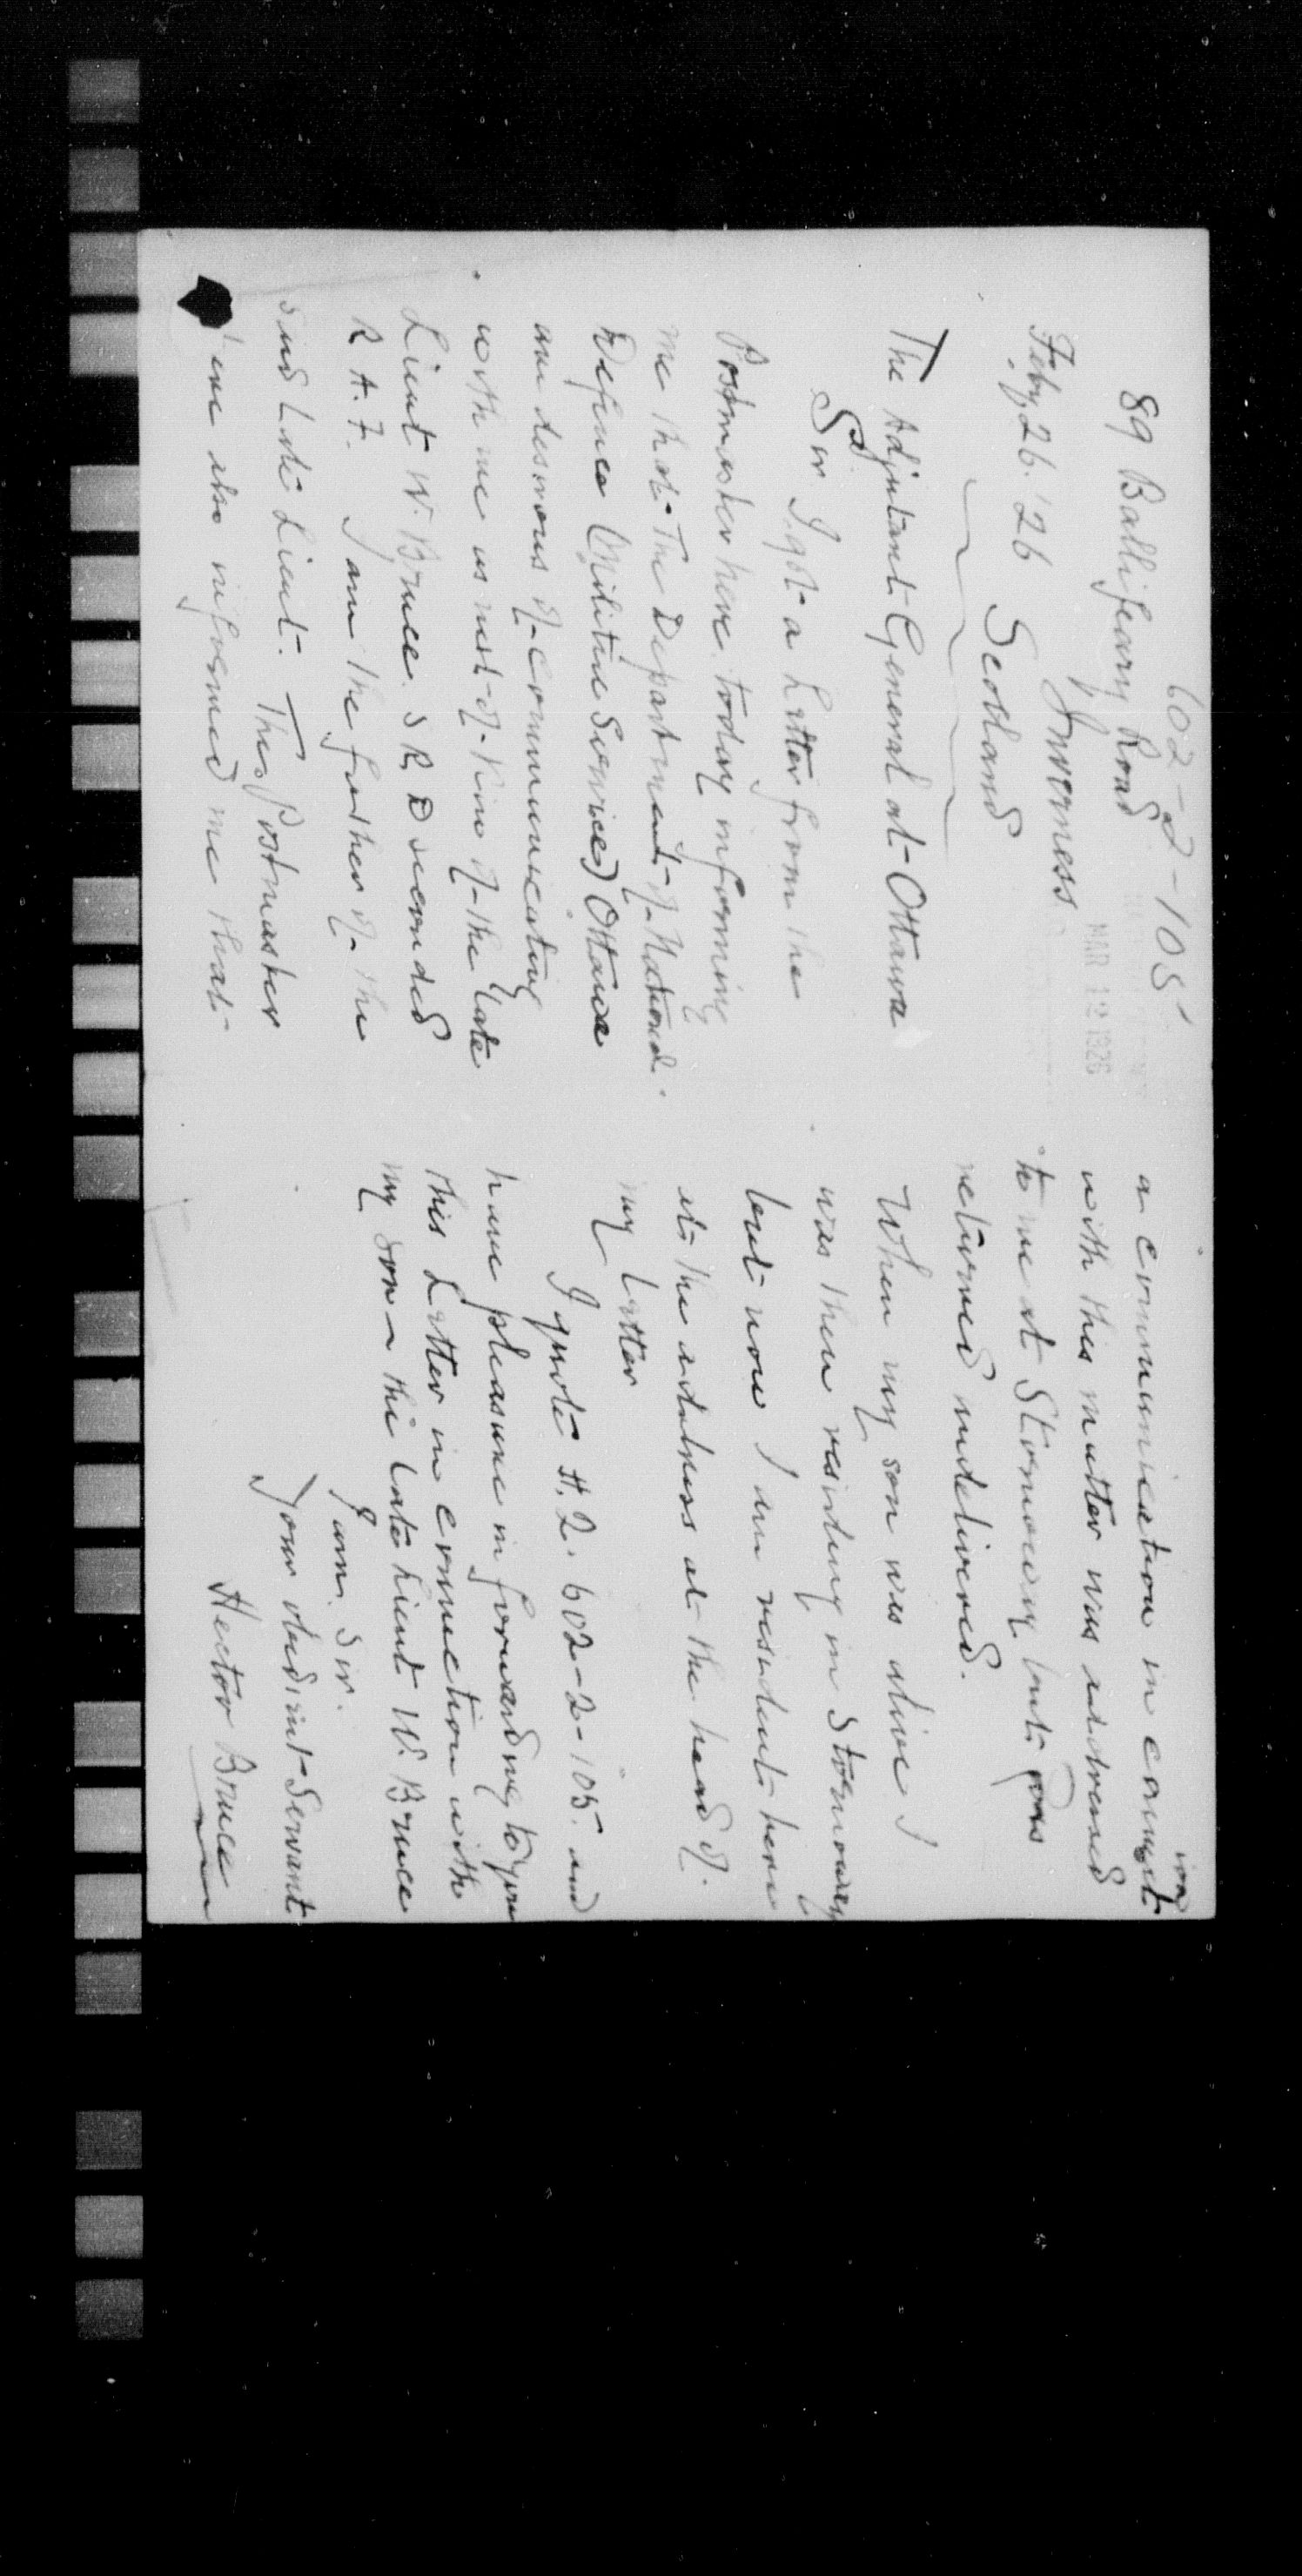 602-2-105
89 Ballifeary Road
Inverness
MAR 12 1926
Feby 26. '26 Scotland
The Adjutant General at Ottawa
Sir I got a Letter from the
Postmaster here today informing
me that The Department of National
Defence (Militia Service) Ottawa
are desirous of communicating
with me as next of Kin of the late
Lieut W. Bruce. S R, D seconded
R A. F. I am the father of the
said Late Lieut. The Postmaster
here also informed me that
a communication in connection
with this matter was addressed
to me at Stornoway but was
returned undelivered.
When my son was alive I
was then residing in Stornoway
but now I am resident here
at the address at the head of
my Letter
I quote H. Q. 602-2-105. and
have pleasure in forwarding to you
this Letter in connection with
my son - the late Lieut W. Bruce
I am. Sir.
Your obedient Servant
Hector Bruce